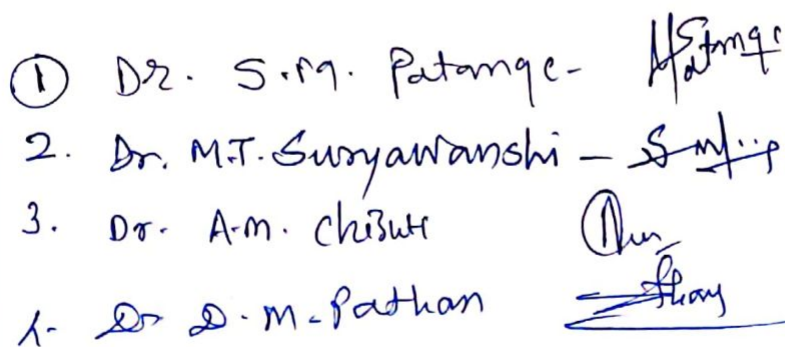 ① Dr. S.M. Patange -
2. Dr. M.T. Suryawanshi -
3. Dr. A.M. Chisute
4. Dr D.M. Pathan